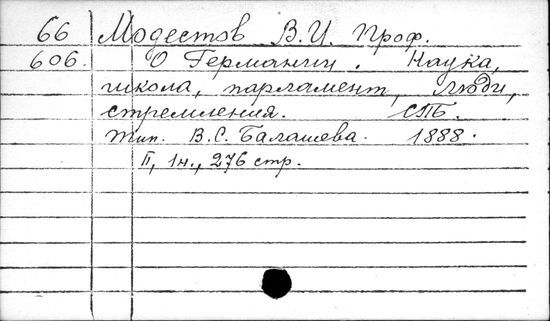 66 Модестов В.И. Проф.
606. О Германии. Наука,
школа, парламент, люди,
стремления. СПБ.
Тип. В.С. Балашева. 1888.
II, 1н., 276 стр.